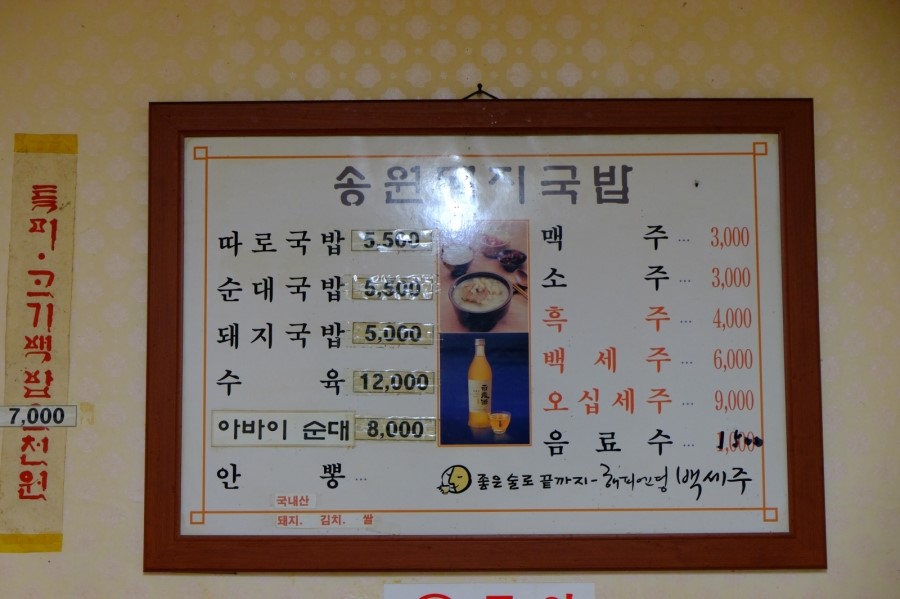 특미·고기백반
천원
7,000
송원돼지국밥
따로국밥 5,500
순대국밥 5,500
돼지국밥 5,000
수육 12,000
아바이 순대 8,000
안뽕 ...
국내산
돼지. 김치. 쌀
맥주 ... 3,000
소주 ... 3,000
흑주 ... 4,000
백세주 ... 6,000
오십세주 ... 9,000
음료수 ... 1,500
좋은술로 끝까지-해피엔딩 백세주